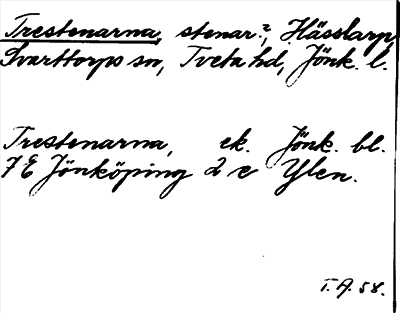 Trestenarna, stenar?, Hässlarp,
Svarttorps sn, Tveta hd, Jönk. l.
Trestenarna, ek. Jönk. bl.
7 E Jönköping 2 e Ylen.
T. A. 58.